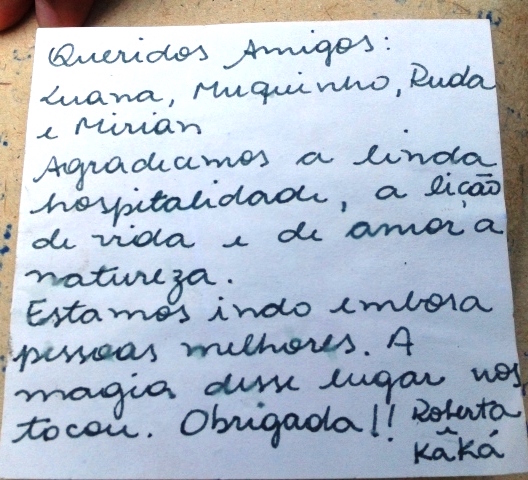 Queridos Amigos:
Luana, Muquinho, Ruda
e Mirian
Agradecemos a linda
hospitalidade, a lição
de vida e de amor a
natureza.
Estamos indo embora
pessoas melhores. A
magia desse lugar nos
tocou. Obrigada!! Roberta
Kâká